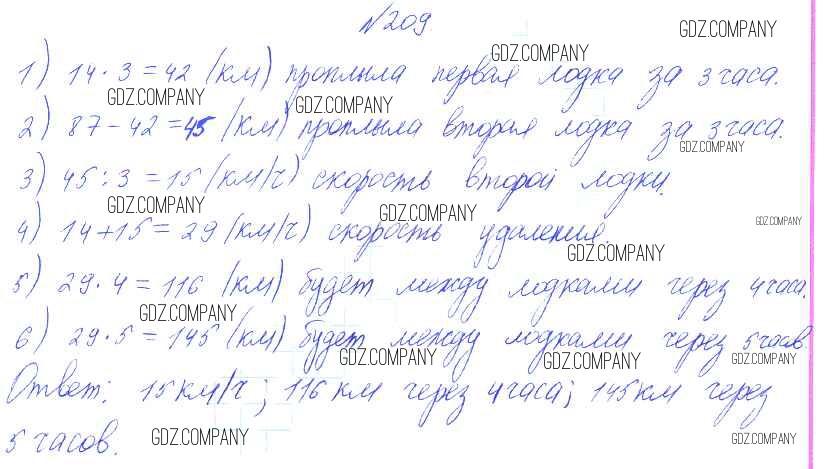 №209
GDZ.COMPANY
GDZ.COMPANY
1) 14·3=42 (км) проплыла первая лодка за 3 часа.
GDZ.COMPANY GDZ.COMPANY
2) 87-42=45 (км) проплыла вторая лодка за 3 часа.
GDZ.COMPANY
3) 45:3=15 (км/ч) скорость второй лодки.
GDZ.COMPANY GDZ.COMPANY GDZ.COMPANY
4) 14+15=29 (км/ч) скорость удаления.
GDZ.COMPANY
5) 29·4=116 (км) будет между лодками через 4 часа.
GDZ.COMPANY
6) 29·5=145 (км) будет между лодками через 5 часов.
GDZ.COMPANY GDZ.COMPANY GDZ.COMPANY
Ответ: 15 км/ч; 116 км через 4 часа; 145 км через
5 часов.
GDZ.COMPANY GDZ.COMPANY